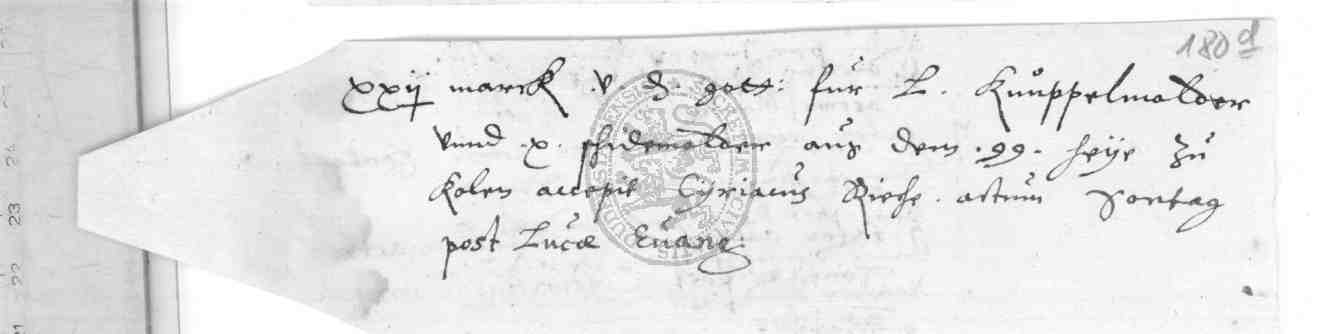 180d
xxij marck .v. d. gott: für L. Knüppelmolder
vnnd .x. schidemolder aus dem .99. heye zu
Kolen accepit Cyriacus Rieche. actum Sontag
post Lucæ Euang: